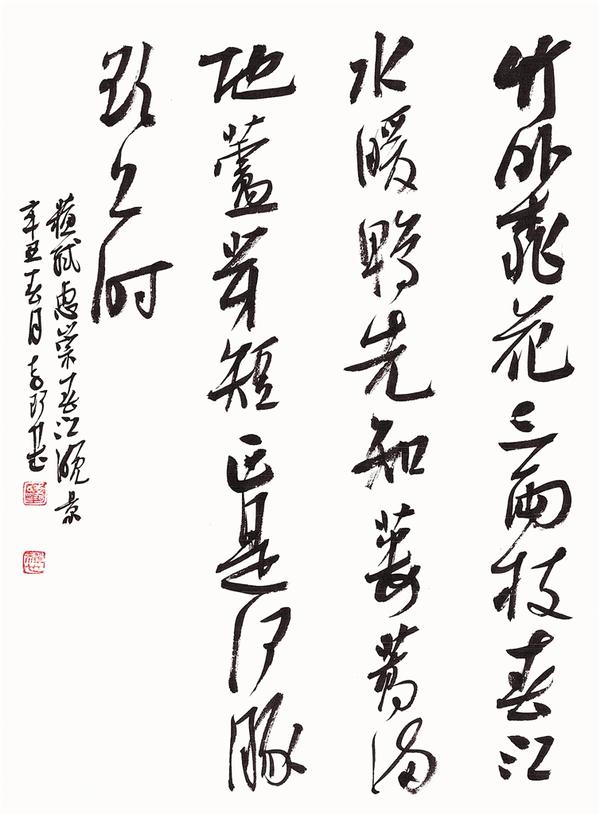 竹外桃花三兩枝春江
水暖鴨先知蔞蒿滿
地蘆芽短正是河豚
欲上时
蘇軾惠崇春江晚景
辛丑春月